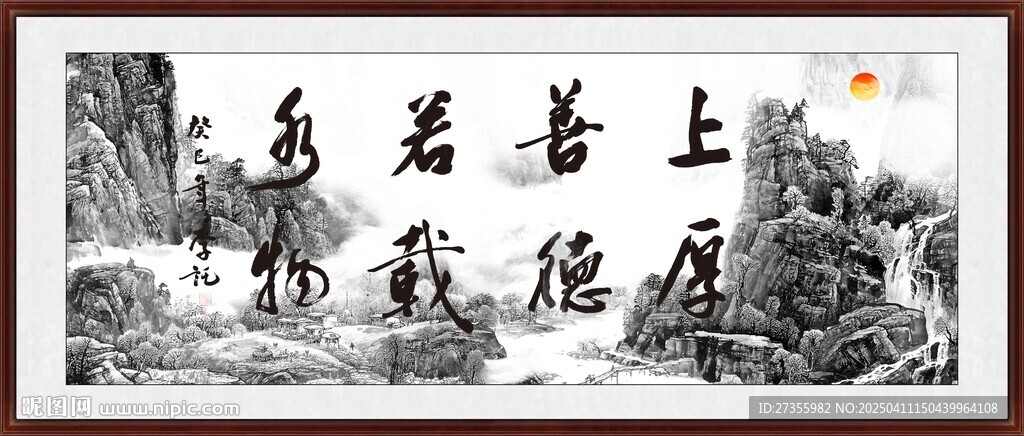 上善若水
厚德載物
癸巳年李
昵图网 www.nipic.com
ID:27355982 NO:20250411150439964108